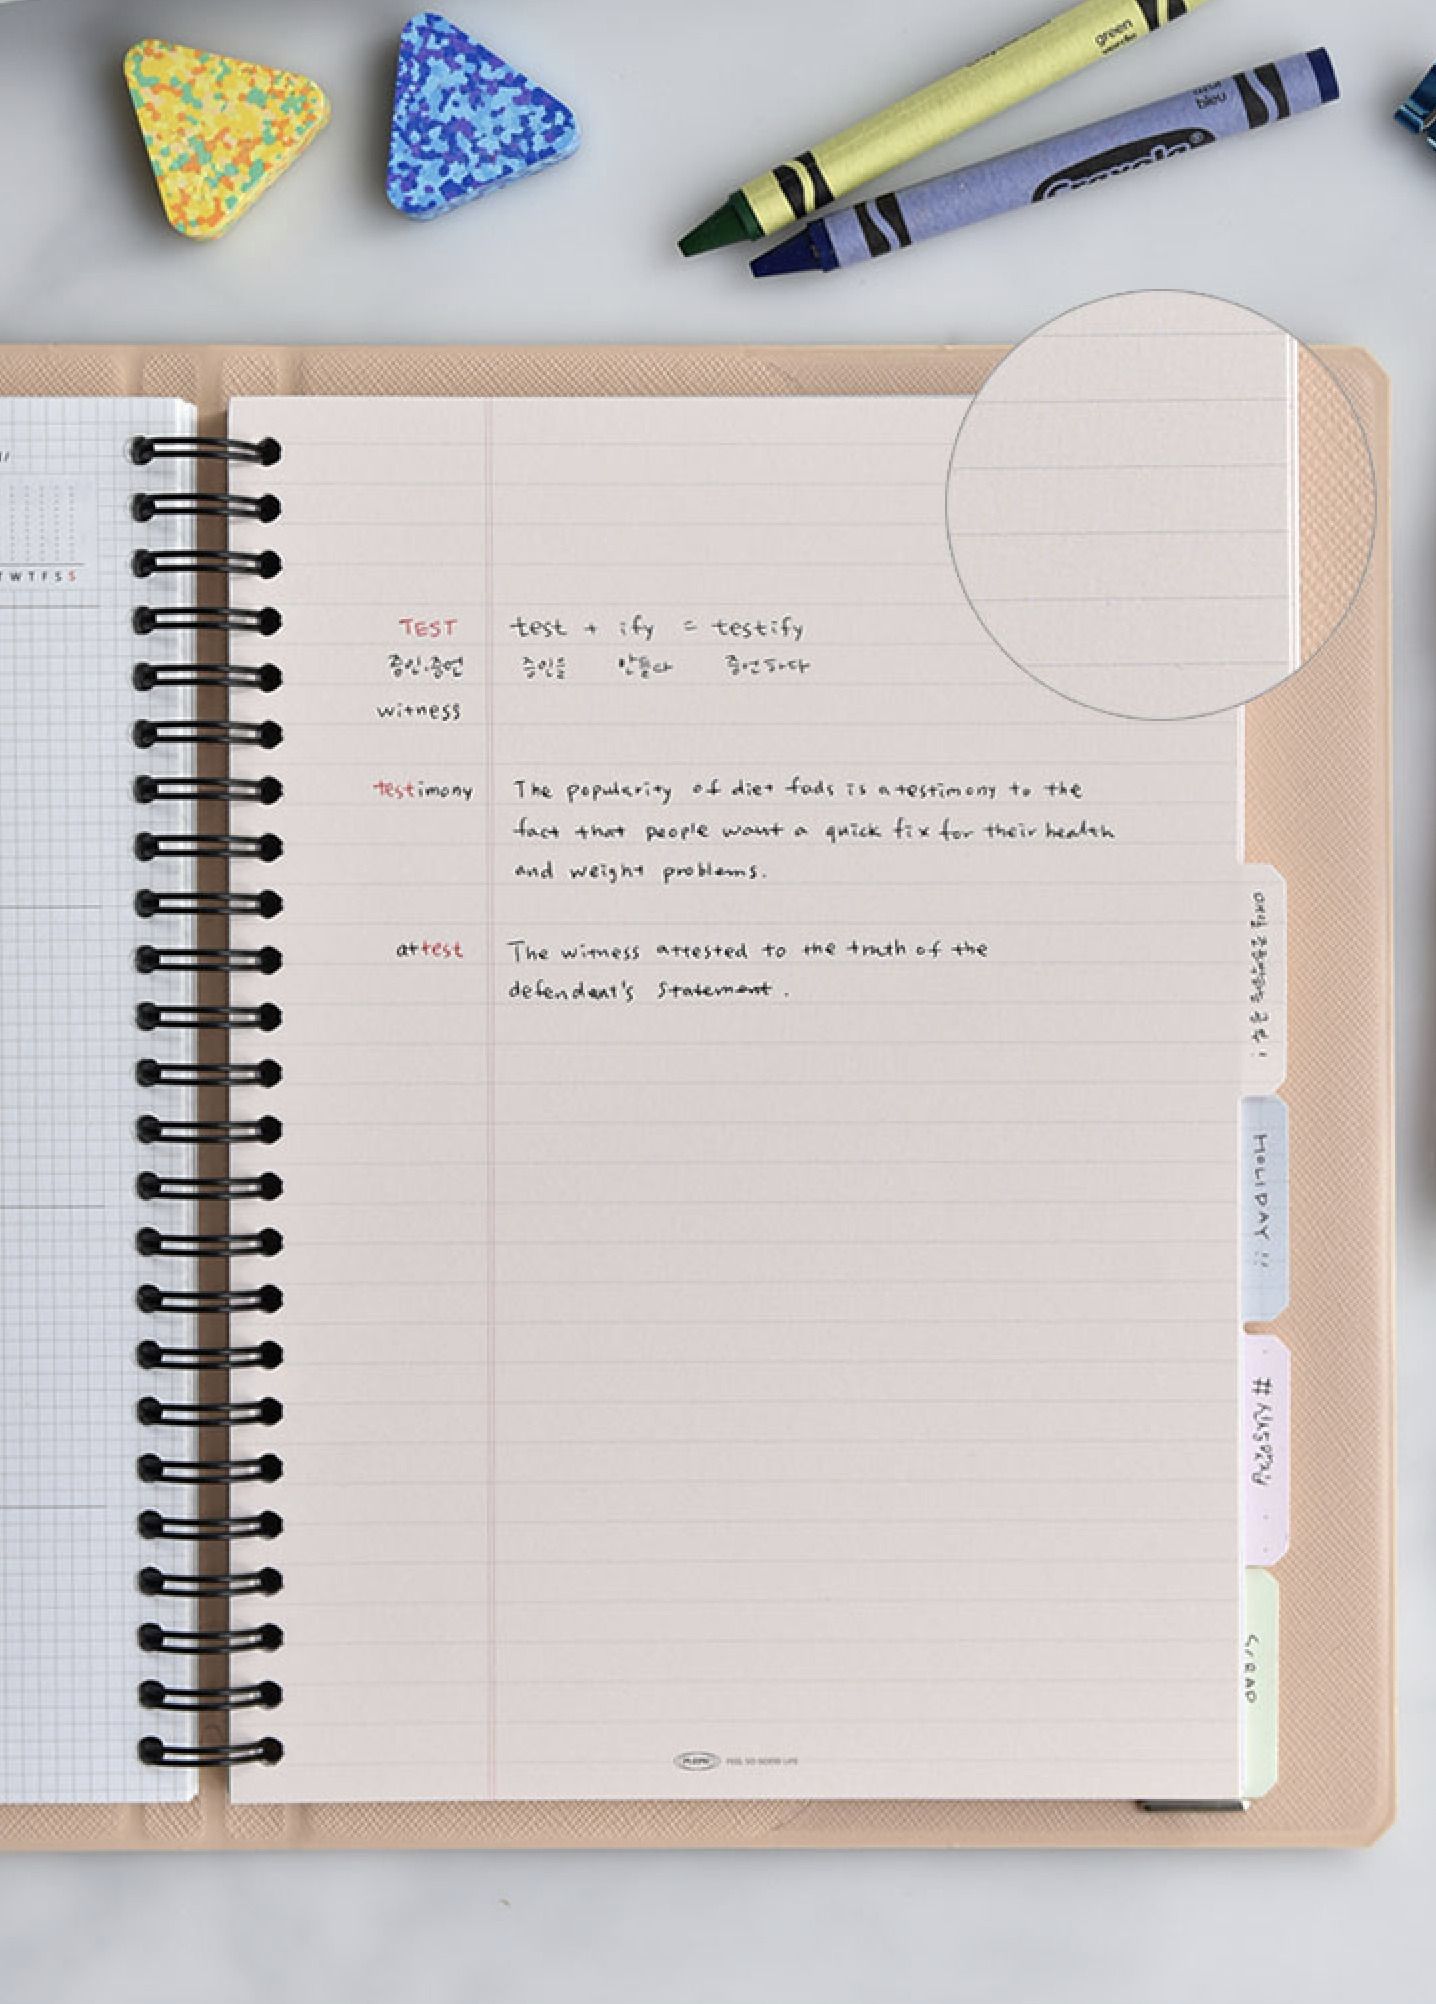 green
bleu
Crayola
T W T F S S
TEST test + ify = testify
증인.증언 증인을 만들다 증언하다
witness
testimony The popularity of diet fads is a testimony to the
fact that people want a quick fix for their health
and weight problems.
attest The witness attested to the truth of the
defendent's statement.
HOLIDAY !!
SCRAP
FEEL SO GOOD LIFE